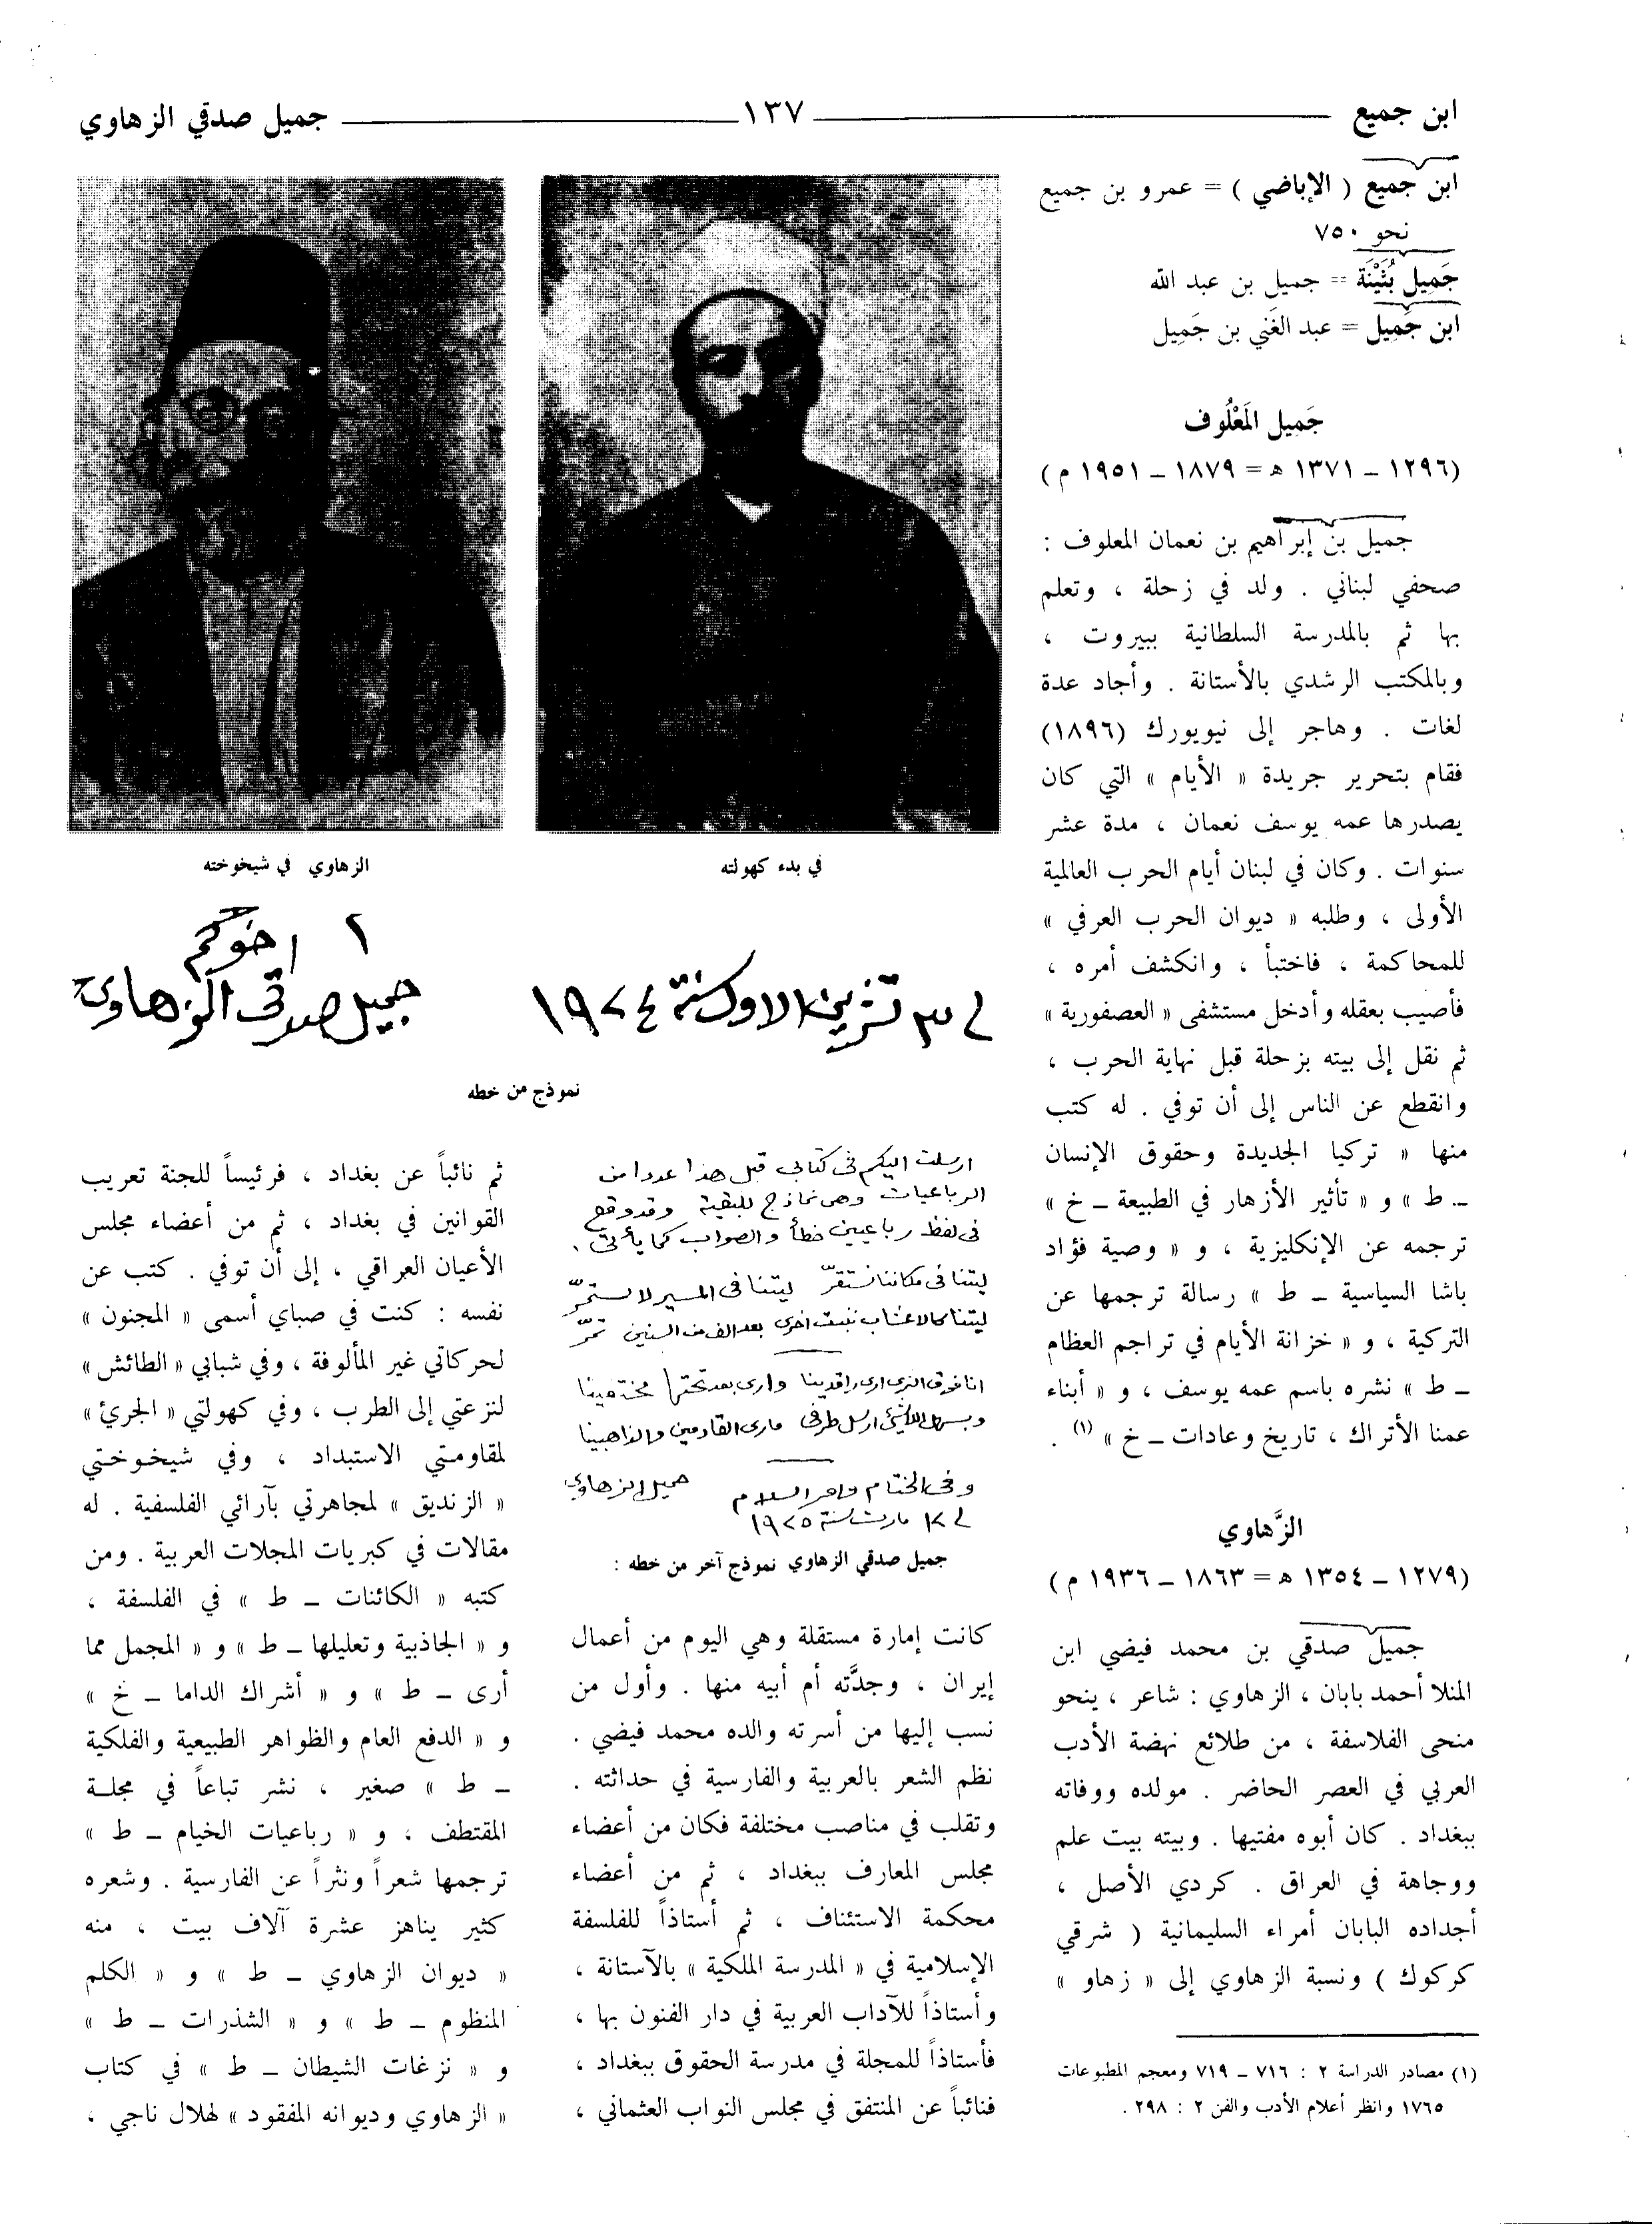 ابن جميع
١٣٧
جميل صدقي الزهاوي
ابن جميع ( الإباضي ) = عمرو بن جميع
نحو ٧٥٠
جَمِيل بُثَيْنَة = جميل بن عبد الله
ابن جَمِيل = عبد الغَني بن جَمِيل
جَمِيل المَعْلُوف
(١٢٩٦ – ١٣٧١ ه = ١٨٧٩ – ١٩٥١ م)
جميل بن إبراهيم بن نعمان المعلوف :
صحفي لبناني . ولد في زحلة ، وتعلم
بها ثم بالمدرسة السلطانية ببيروت ،
وبالمكتب الرشدي بالأستانة . وأجاد عدة
لغات . وهاجر إلى نيويورك (١٨٩٦)
فقام بتحرير جريدة « الأيام » التي كان
يصدرها عمه يوسف نعمان ، مدة عشر
سنوات . وكان في لبنان أيام الحرب العالمية
الأولى ، وطلبه « ديوان الحرب العرفي »
للمحاكمة ، فاختبأ ، وانكشف أمره ،
فأصيب بعقله وأدخل مستشفى « العصفورية »
ثم نقل إلى بيته بزحلة قبل نهاية الحرب ،
وانقطع عن الناس إلى أن توفي . له كتب
منها « تركيا الجديدة وحقوق الإنسان
– ط » و « تأثير الأزهار في الطبيعة – خ »
ترجمه عن الإنكليزية ، و « وصية فؤاد
باشا السياسية – ط » رسالة ترجمها عن
التركية ، و « خزانة الأيام في تراجم العظام
– ط » نشره باسم عمه يوسف ، و « أبناء
عمنا الأتراك ، تاريخ وعادات – خ » (١) .
الزَّهاوي
(١٢٧٩ – ١٣٥٤ ه = ١٨٦٣ – ١٩٣٦ م)
جميل صدقي بن محمد فيضي ابن
المنلا أحمد بابان ، الزهاوي : شاعر ، ينحو
منحى الفلاسفة ، من طلائع نهضة الأدب
العربي في العصر الحاضر . مولده ووفاته
ببغداد . كان أبوه مفتيها . وبيته بيت علم
ووجاهة في العراق . كردي الأصل ،
أجداده البابان أمراء السليمانية ( شرقي
كركوك ) ونسبة الزهاوي إلى « زهاو »
(١) مصادر الدراسة ٢ : ٧١٦ – ٧١٩ ومعجم المطبوعات
١٧٦٥ وانظر أعلام الأدب والفن ٢ : ٢٩٨ .
في بدء كهولته
الزهاوي في شيخوخته
اخوكم
جميل صدقي الزهاوي
في ٣ تشرين الاول سنة ١٩٢٤
نموذج من خطه
ارسلت اليكم في كتابي قبل هذا عددا من
الرباعيات وهي نماذج للبقية وقد وقع
في لفظ رباعيين خطأ والصواب كما يأتي
ليتنا في مكاننا نستقرّ ليتنا في المسير لا نستمرّ
ليتنا كالاعشاب ننبت اخرى بعد الف من السنين تمرّ
انا فوق الثرى ارى راقدينا وارى بعد تحتها مختفينا
ارسل طرفي فارى القادمين والذاهبينا
وفي الختام السلام
جميل الزهاوي
مارت سنة ١٩٢٥
جميل صدقي الزهاوي نموذج آخر من خطه :
كانت إمارة مستقلة وهي اليوم من أعمال
إيران ، وجدَّته أم أبيه منها . وأول من
نسب إليها من أسرته والده محمد فيضي .
نظم الشعر بالعربية والفارسية في حداثته .
وتقلب في مناصب مختلفة فكان من أعضاء
مجلس المعارف ببغداد ، ثم من أعضاء
محكمة الاستئناف ، ثم أستاذاً للفلسفة
الإسلامية في « المدرسة الملكية » بالآستانة ،
وأستاذاً للآداب العربية في دار الفنون بها ،
فأستاذاً للمجلة في مدرسة الحقوق ببغداد ،
فنائباً عن المنتفق في مجلس النواب العثماني ،
ثم نائباً عن بغداد ، فرئيساً للجنة تعريب
القوانين في بغداد ، ثم من أعضاء مجلس
الأعيان العراقي ، إلى أن توفي . كتب عن
نفسه : كنت في صباي أسمى « المجنون »
لحركاتي غير المألوفة ، وفي شبابي « الطائش »
لنزعتي إلى الطرب ، وفي كهولتي « الجرئ »
لمقاومتي الاستبداد ، وفي شيخوختي
« الزنديق » لمجاهرتي بآرائي الفلسفية . له
مقالات في كبريات المجلات العربية . ومن
كتبه « الكائنات – ط » في الفلسفة ،
و « الجاذبية وتعليلها – ط » و « المجمل مما
أرى – ط » و « أشراك الداما – خ »
و « الدفع العام والظواهر الطبيعية والفلكية
– ط » صغير ، نشر تباعاً في مجلة
المقتطف ، و « رباعيات الخيام – ط »
ترجمها شعراً ونثراً عن الفارسية . وشعره
كثير يناهز عشرة آلاف بيت ، منه
« ديوان الزهاوي – ط » و « الكلم
المنظوم – ط » و « الشذرات – ط »
و « نزغات الشيطان – ط » في كتاب
« الزهاوي وديوانه المفقود » لهلال ناجي ،